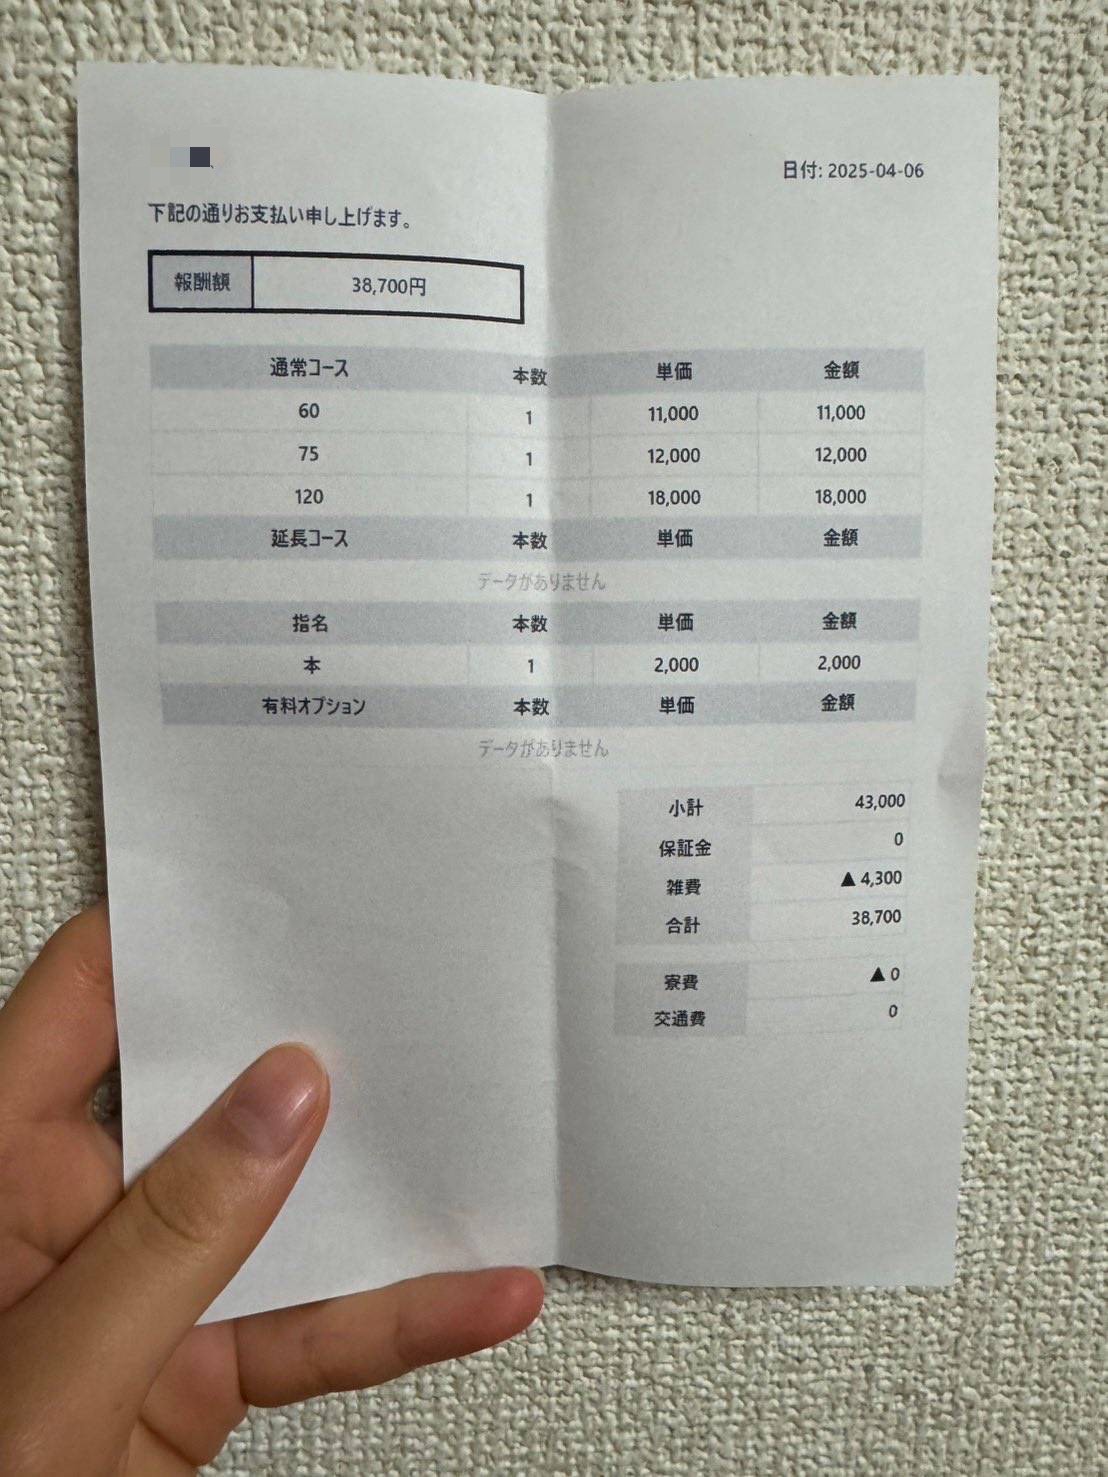 日付: 2025-04-06
下記の通りお支払い申し上げます。
報酬額 38,700円
通常コース 本数 単価 金額
60 1 11,000 11,000
75 1 12,000 12,000
120 1 18,000 18,000
延長コース 本数 単価 金額
データがありません
指名 本数 単価 金額
本 1 2,000 2,000
有料オプション 本数 単価 金額
データがありません
小計 43,000
保証金 0
雑費 ▲ 4,300
合計 38,700
寮費 ▲ 0
交通費 0